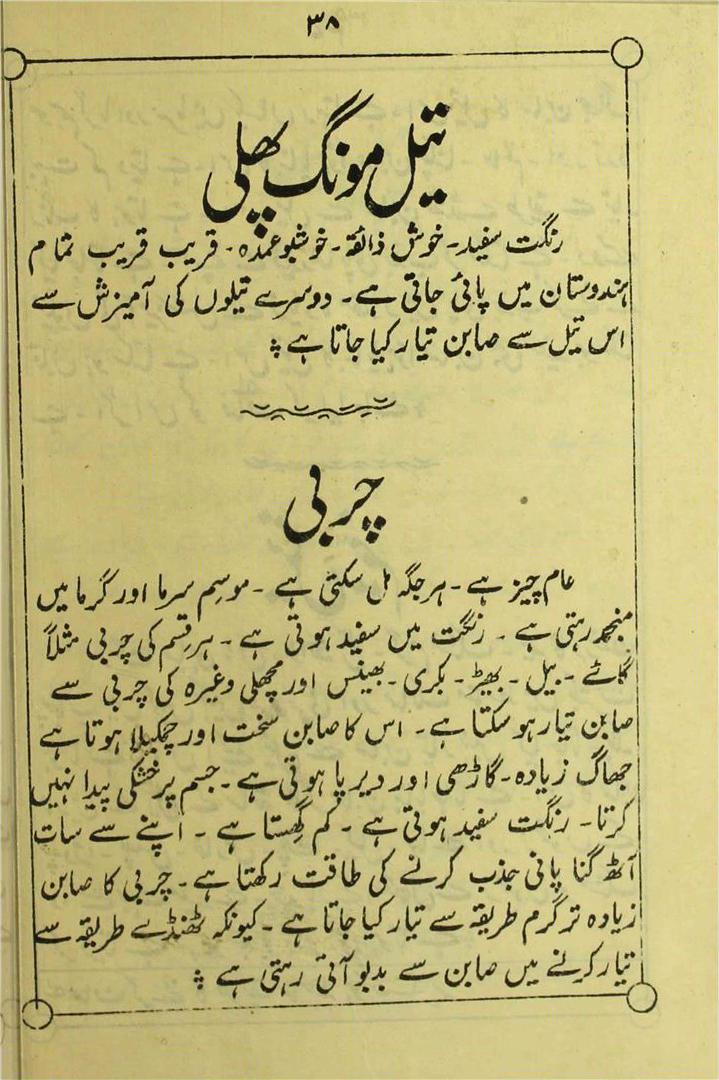 ۳۸
تیل مونگ پھلی
رنگت سفید۔ خوش ذائقہ۔ خوشبو عمدہ۔ قریب قریب تمام
ہندوستان میں پائی جاتی ہے۔ دوسرے تیلوں کی آمیزش سے
اس تیل سے صابن تیار کیا جاتا ہے ؞
چربی
عام چیز ہے۔ ہر جگہ مل سکتی ہے۔ موسمِ سرما اور گرما میں
منجمد رہتی ہے۔ رنگت میں سفید ہوتی ہے۔ ہر قسم کی چربی مثلاً
گائے۔ بیل۔ بھیڑ۔ بکری۔ بھینس اور مچھلی وغیرہ کی چربی سے
صابن تیار ہو سکتا ہے۔ اس کا صابن سخت اور چمکیلا ہوتا ہے
جھاگ زیادہ۔ گاڑھی اور دیرپا ہوتی ہے۔ جسم پر خشکی پیدا نہیں
کرتا۔ رنگت سفید ہوتی ہے۔ کم گھِستا ہے۔ اپنے سے سات
آٹھ گنا پانی جذب کرنے کی طاقت رکھتا ہے۔ چربی کا صابن
زیادہ تر گرم طریقہ سے تیار کیا جاتا ہے۔ کیونکہ ٹھنڈے طریقہ سے
تیار کرنے میں صابن سے بدبو آتی رہتی ہے ؞